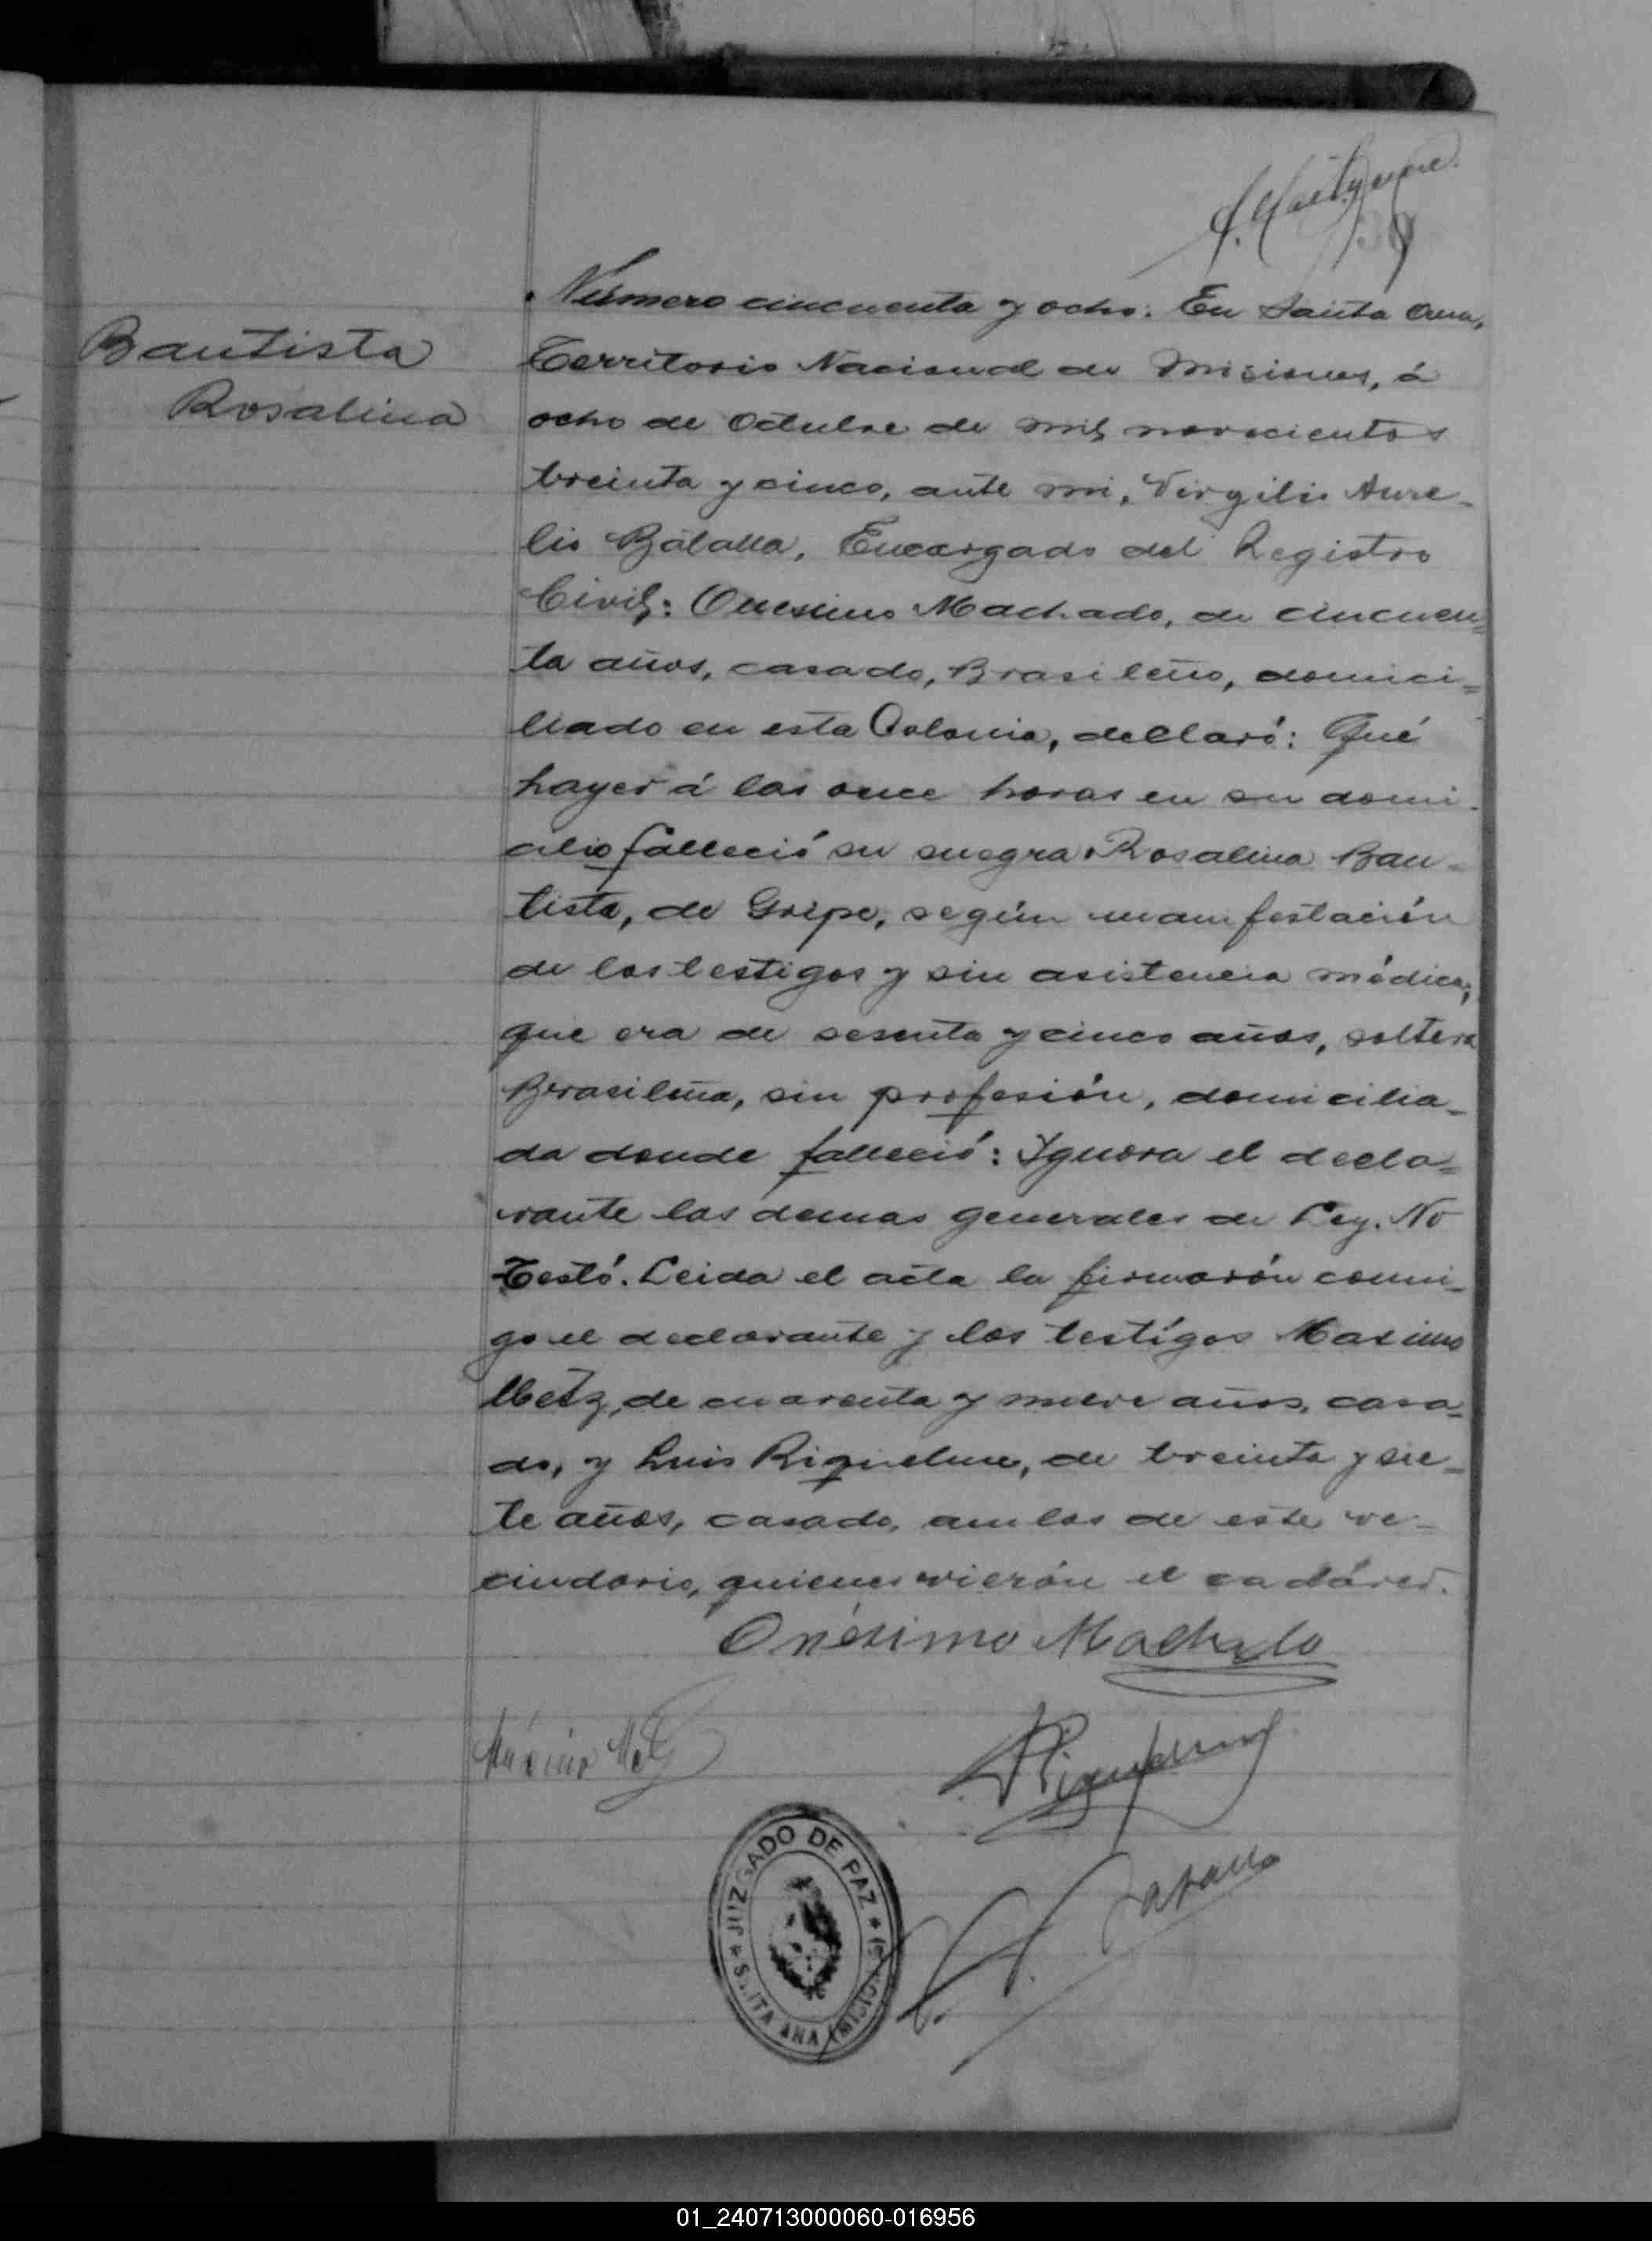 Bautista
Rosalina
Número cincuenta y ocho: En Santa Ana,
Territorio Nacional de Misiones, á
ocho de Octubre de mil novecientos
treinta y cinco, ante mi, Virgilio Aure-
lio Bálalla, Encargado del Registro
Civil: Onesimo Machado, de cincuen=
ta años, casado, Brasileño, domici=
liado en esta Colonia, declaró: Qué
hayer á las once horas en su domi-
cilio falleció su suegra Rosalina Bau-
tista, de Gripe, según manifestación
de los testigos y sin asistencia médica;
que era de sesenta y cinco años, soltera
Brasileña, sin profesión, domicilia-
da donde falleció: Ygnora el decla=
rante las demas generales de Ley. No
Testó. Leida el acta la firmarón conmi-
go el declarante y los testigos Maximo
Metz, de cuarenta y nueve años, casa=
do, y Luis Riquelme, de treinta y sie-
te años, casado, ambos de este ve-
cindario, quienes vierón el cadáver.
Onésimo Machado
Máximo Metz
Riquelme
JUZGADO DE PAZ
SANTA ANA (MISIONES)
01_240713000060-016956